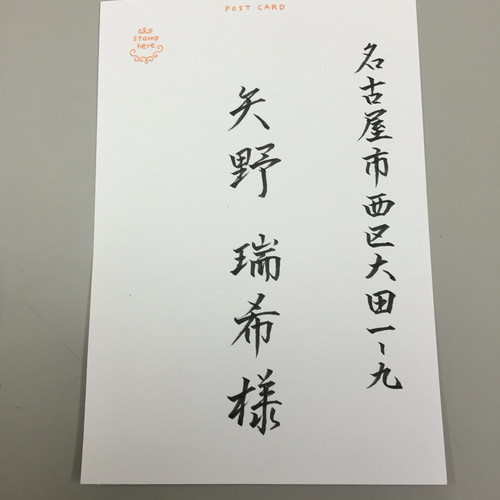 POST CARD
stamp
here
名古屋市西区大田一-九
矢野 瑞希様